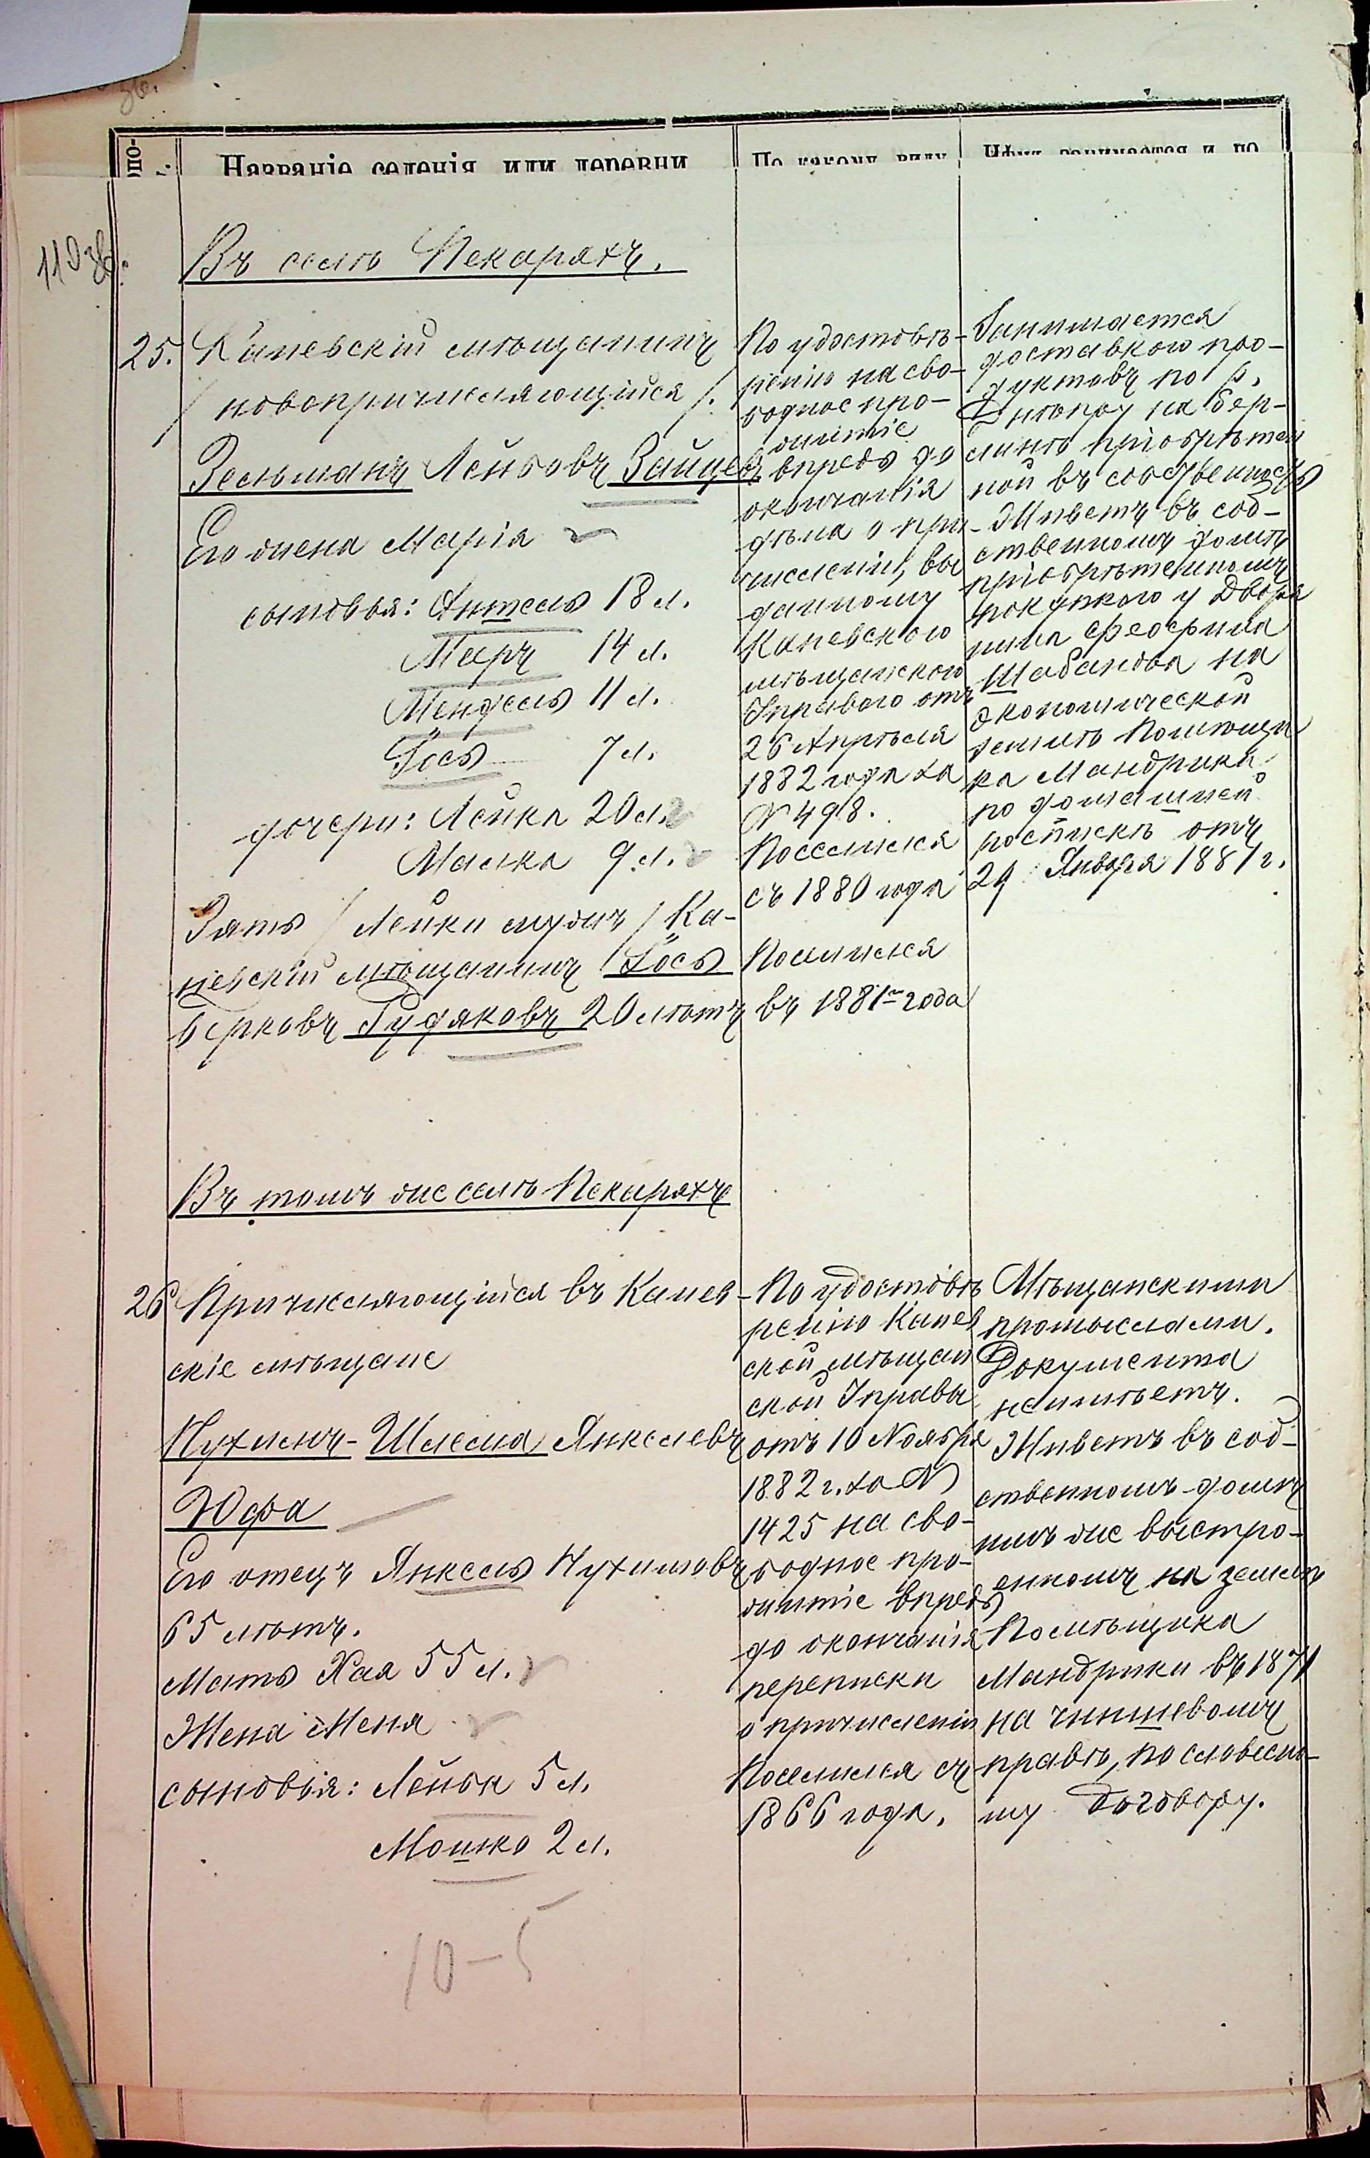 Названіе селенія или деревни
По какому виду
Чѣмъ занимается и по
Въ селѣ Пекаряхъ.
25.
Каневскій мѣщанинъ
/ новопричисляющійся /.
Зельманъ Лейбовъ Зайцевъ
Его жена Марія
сыновья: Антель 18 л.
Меръ 14 л.
Мендель 11 л.
Іось 7 л.
дочери: Лейка 20 л.
Малка 9 л.
Зять / Лейки мужъ / Ка-
невскій мѣщанинъ Іось
Берковъ Гудяковъ 20 лѣтъ
По удостовѣ-
ренію на сво-
бодное про-
житіе
впредь до
окончанія
дѣла о при-
численіи, вы
данному
Каневского
мѣщанского
Управою отъ
26 Апрѣля
1882 года за
№ 498.
Поселился
съ 1880 года
Поселился
въ 1881 года
Занимается
доставкою про-
дуктовъ по р.
Днѣпру на бер-
линѣ пріобрѣтен
ной въ собственность
Живетъ въ соб-
ственномъ домѣ
пріобрѣтенномъ
покупкою у Дворя
нина Феофила
Шабанова на
экономической
землѣ Помѣщи
ка Мандрыки
по домашней
роспискѣ отъ
29 Января 1881 г.
Въ томъ же селѣ Пекаряхъ
26
Причисляющійся въ Канев-
скіе мѣщане
Нухимъ-Шлема Янкелевъ
Юфа
Его отецъ Янкель Нухимовъ
65 лѣтъ.
Мать Хая 55 л.
Жена Меня
сыновья: Лейба 5 л.
Мошко 2 л.
По удостовѣ
ренію Канев
ской мѣщан
ской Управы
отъ 10 Ноября
1882 г. за №
1425 на сво-
бодное про-
житіе впредь
до окончанія
переписки
о причисленіи
Поселился съ
1866 года.
Мѣщанскими
промыслами.
Документа
неимѣетъ.
Живетъ въ соб-
ственномъ домѣ
имъ же выстро-
енномъ на землѣ
Помѣщика
Мандрыки въ 1871
на чиншевомъ
правѣ, по словесно-
му договору.
10-5